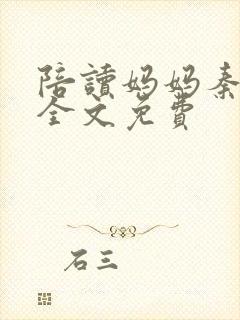 陪讀妈妈秦
全文免費
石三